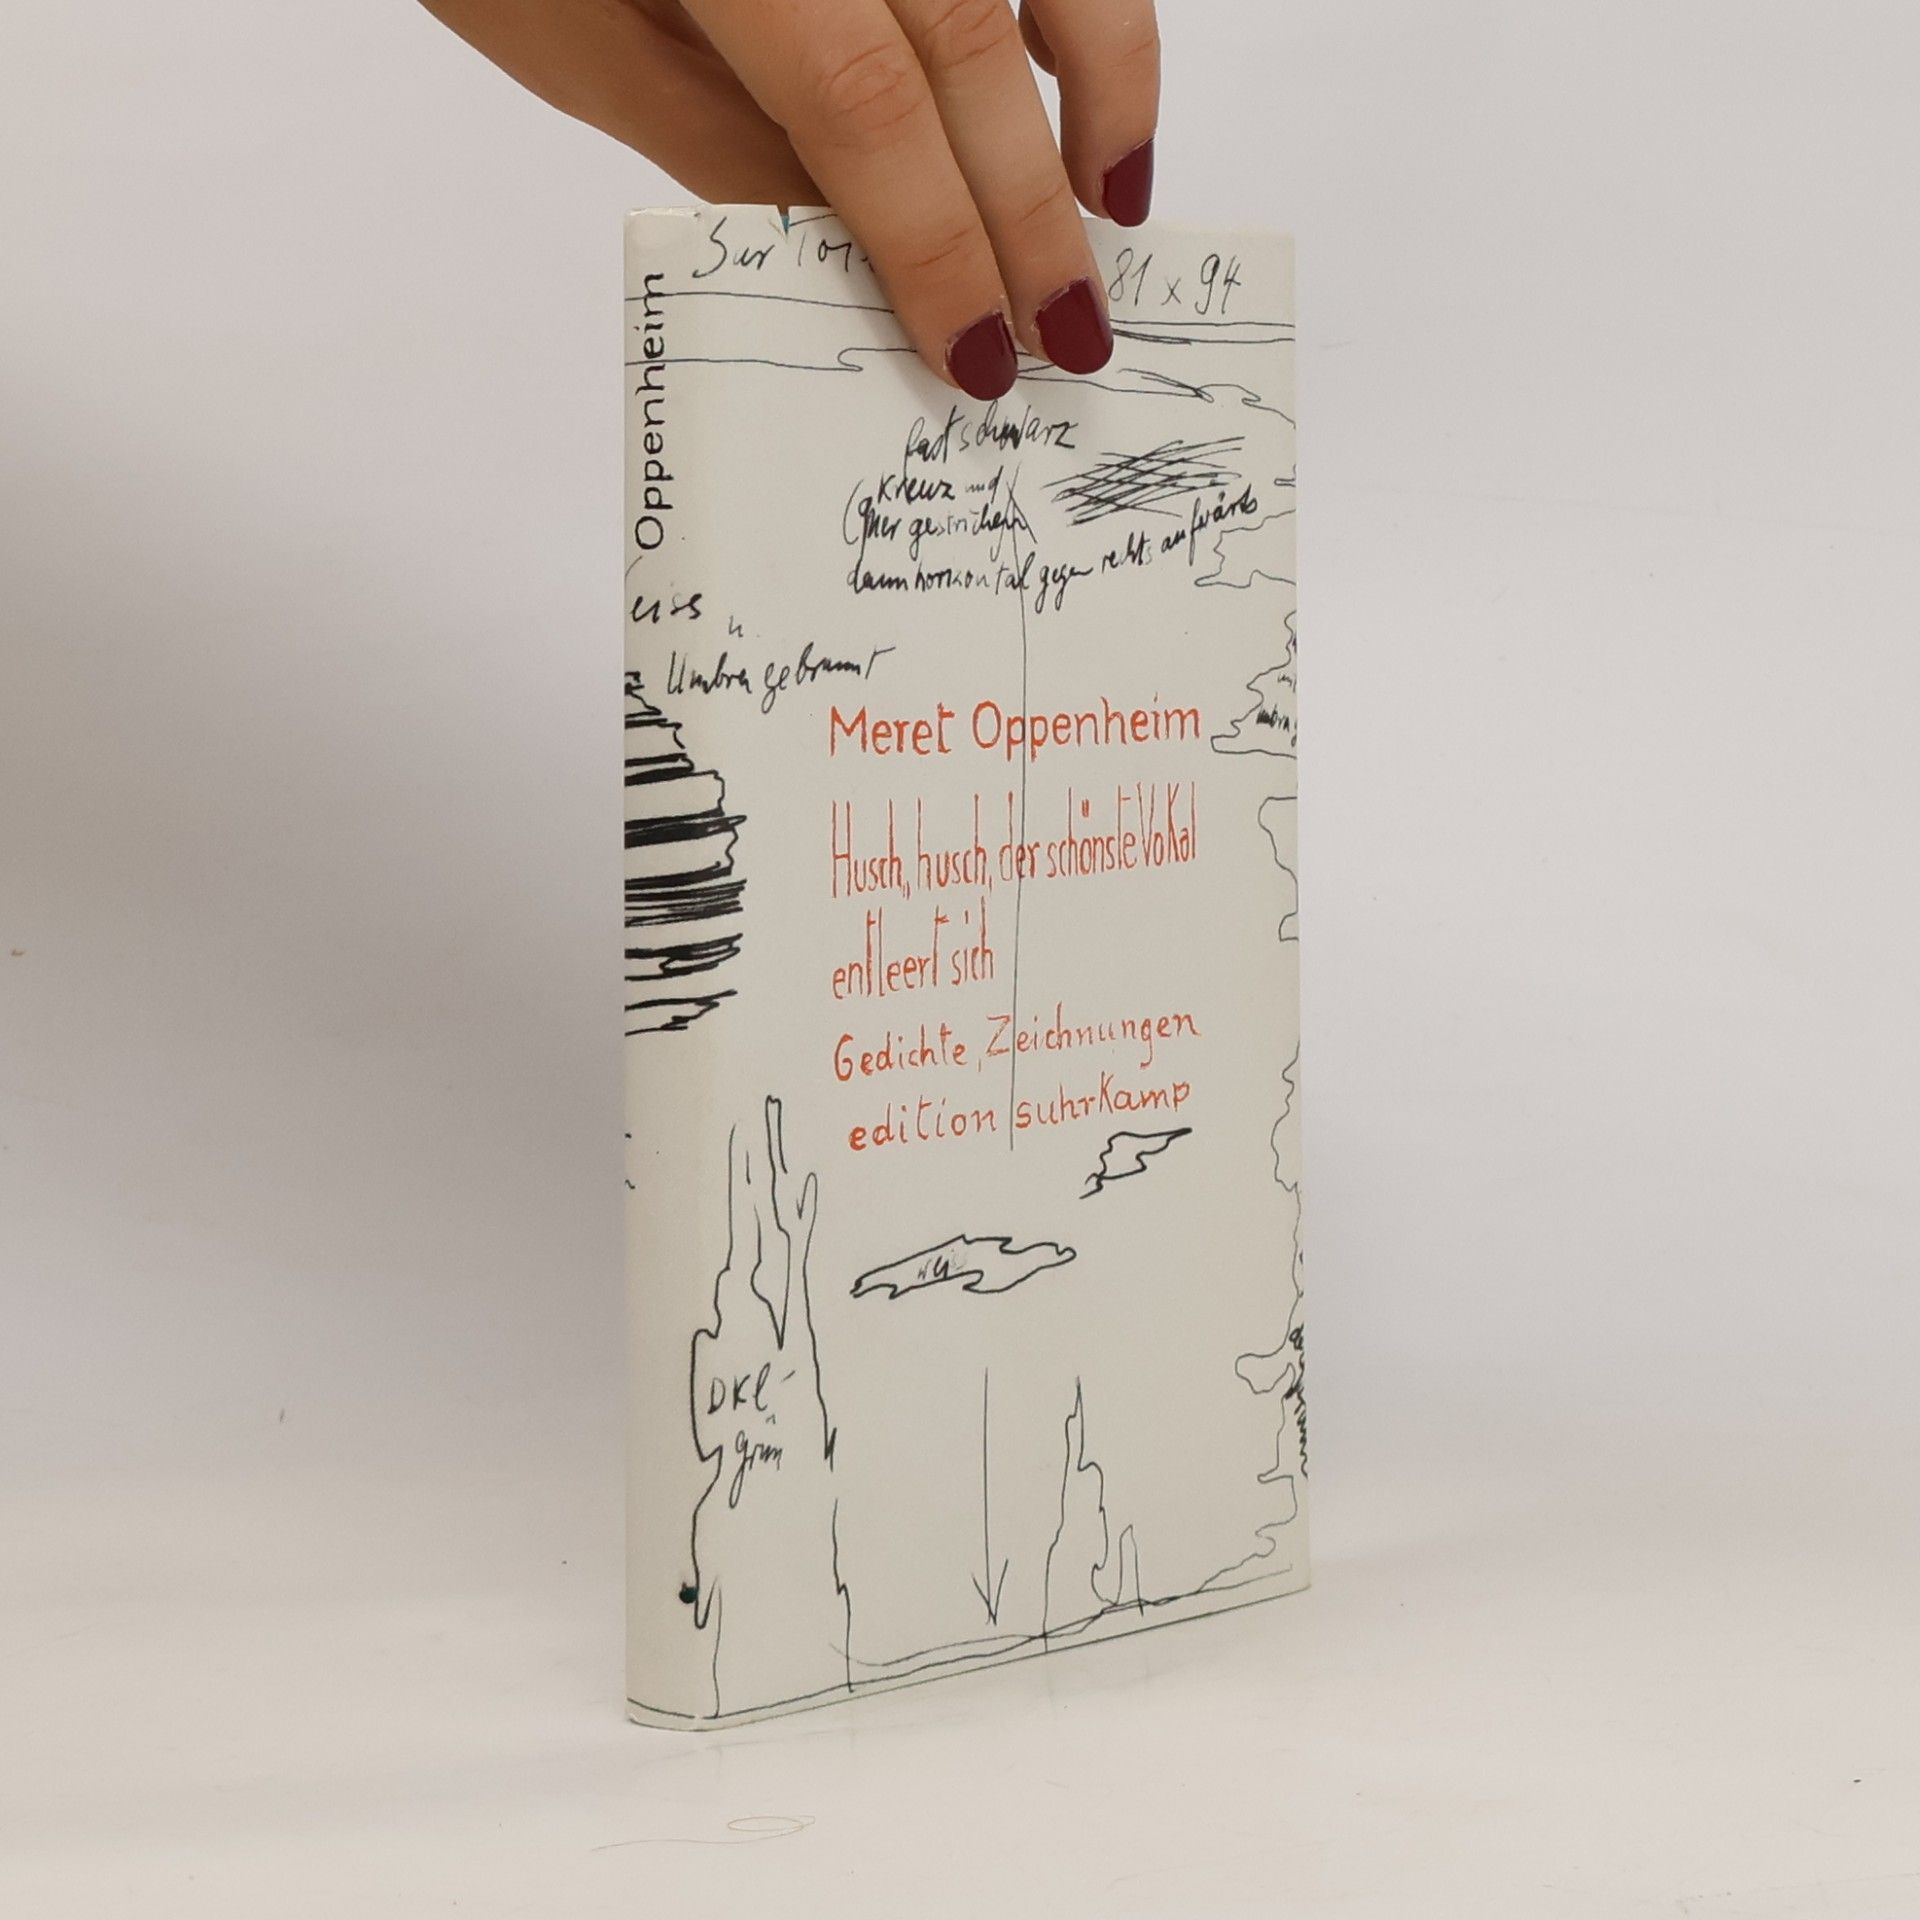 Oppenheim
Sur
81 x 94
fast schwarz
(Kreuz und
quer gestrichen
dann horizontal gegen rechts aufwärts
eiss u.
Umbra gebrannt
Meret Oppenheim
Husch, husch, der schönste Vokal
entleert sich
Gedichte, Zeichnungen
edition suhrkamp
weiss
DKl-
grün